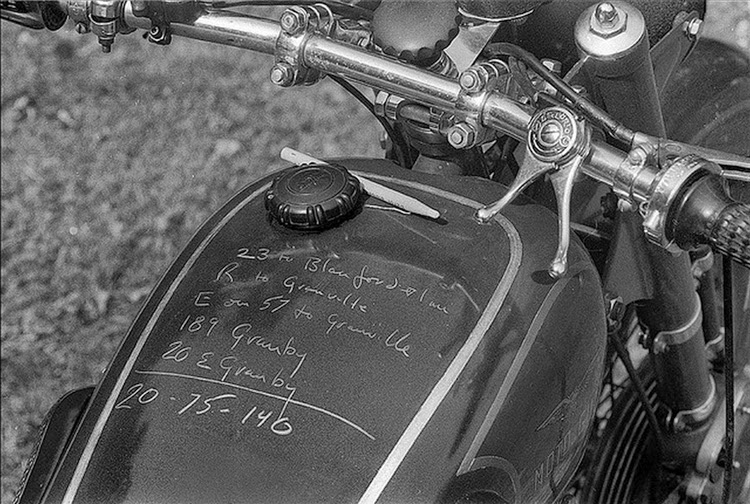 23 to Blanford + line
R to Granville
E on 57 to Granville
189 Granby
20 E Granby
20-75-140